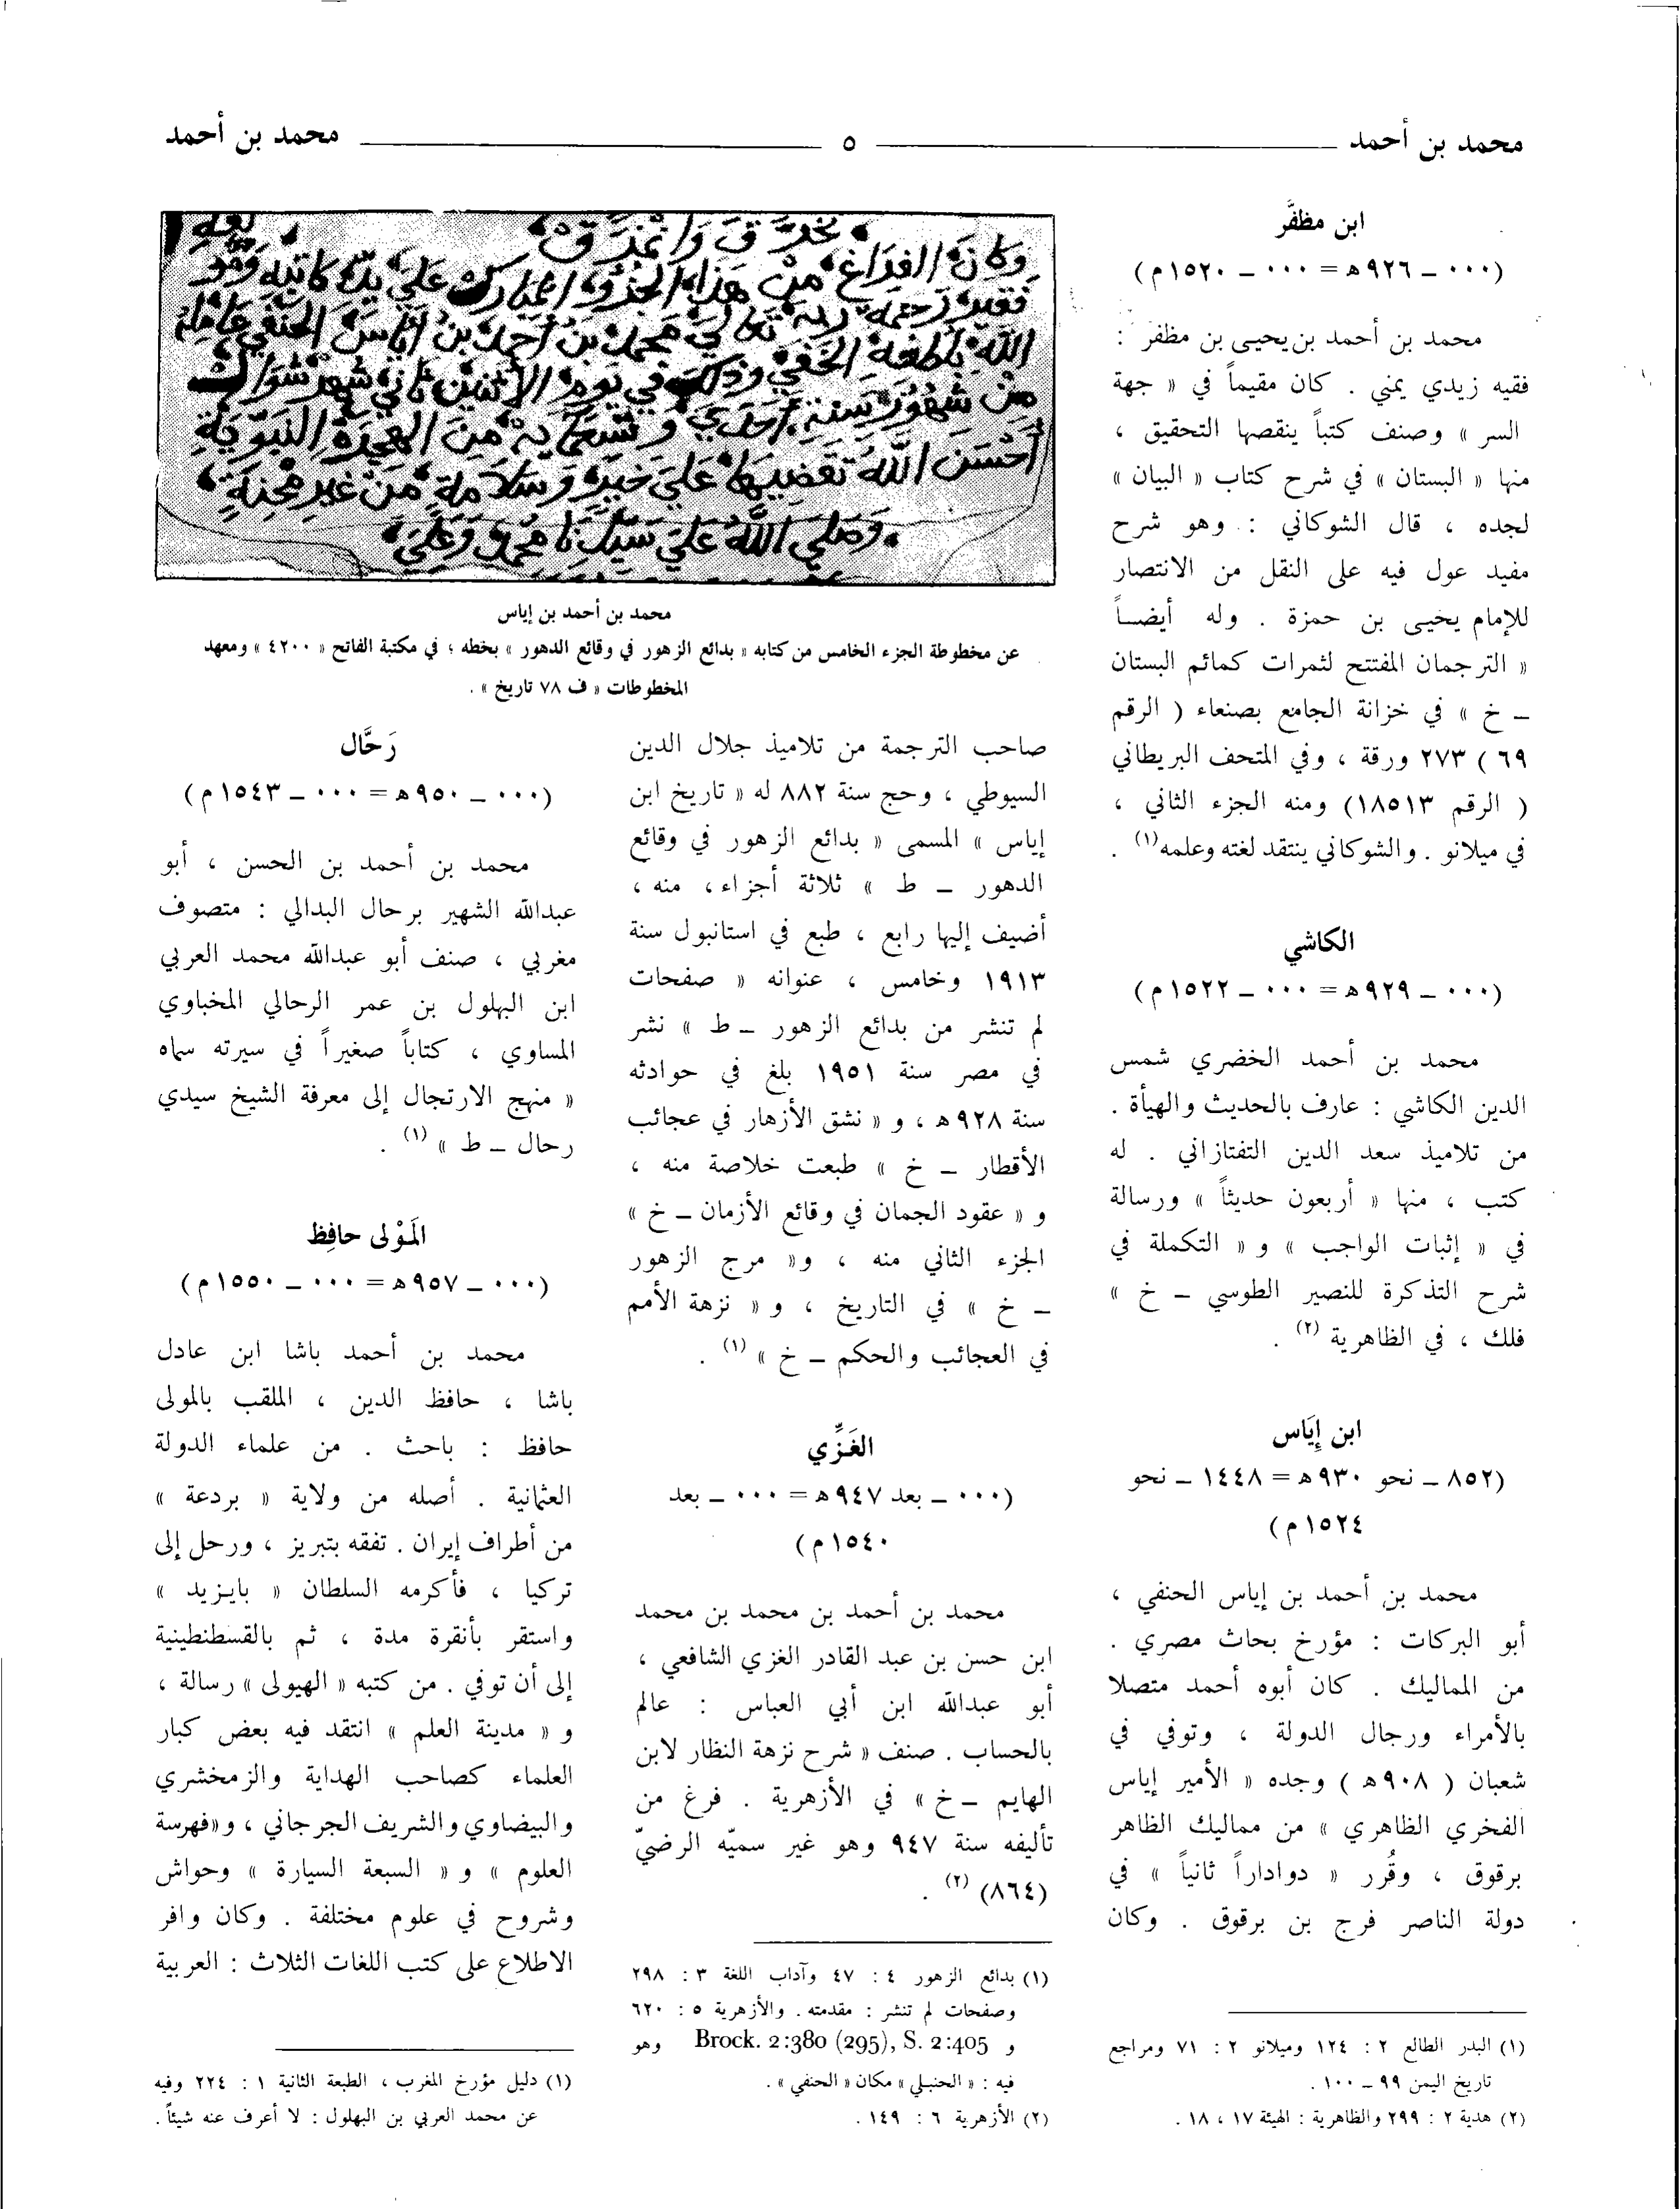 محمد بن أحمد ــــ ٥ ــــ محمد بن أحمد
ابن مظفَّر
(٠٠٠ ـ ٩٢٦ هـ = ٠٠٠ ـ ١٥٢٠ م)
محمد بن أحمد بن يحيى بن مظفر :
فقيه زيدي يمني . كان مقيماً في « جهة
السر » وصنف كتباً ينقصها التحقيق ،
منها « البستان » في شرح كتاب « البيان »
لجده ، قال الشوكاني : وهو شرح
مفيد عول فيه على النقل من الانتصار
للإمام يحيى بن حمزة . وله أيضاً
« الترجمان المفتتح لثمرات كمائم البستان
ـ خ » في خزانة الجامع بصنعاء ( الرقم
٦٩ ) ٢٧٣ ورقة ، وفي المتحف البريطاني
( الرقم ١٨٥١٣) ومنه الجزء الثاني ،
في ميلانو . والشوكاني ينتقد لغته وعلمه (١) .
الكاشي
(٠٠٠ ـ ٩٢٩ هـ = ٠٠٠ ـ ١٥٢٢ م)
محمد بن أحمد الخضري شمس
الدين الكاشي : عارف بالحديث والهيأة .
من تلاميذ سعد الدين التفتازاني . له
كتب ، منها « أربعون حديثاً » ورسالة
في « إثبات الواجب » و « التكملة في
شرح التذكرة للنصير الطوسي ـ خ »
فلك ، في الظاهرية (٢) .
ابن إِيَاس
(٨٥٢ ـ نحو ٩٣٠ هـ = ١٤٤٨ ـ نحو
١٥٢٤ م)
محمد بن أحمد بن إياس الحنفي ،
أبو البركات : مؤرخ بحاث مصري .
من المماليك . كان أبوه أحمد متصلا
بالأمراء ورجال الدولة ، وتوفي في
شعبان ( ٩٠٨ هـ ) وجده « الأمير إياس
الفخري الظاهري » من مماليك الظاهر
برقوق ، وقُرر « دواداراً ثانياً » في
دولة الناصر فرج بن برقوق . وكان
(١) البدر الطالع ٢ : ١٢٤ وميلانو ٢ : ٧١ ومراجع
تاريخ اليمن ٩٩ ـ ١٠٠ .
(٢) هدية ٢ : ٢٩٩ والظاهرية : الهيئة ١٧ ، ١٨ .
وكان الفراغ من هذا الجزؤ المبارك على يد كاتبه
فقير رحمة ربه تعالى محمد بن أحمد بن أياس الحنفي عامله
الله بلطفه الخفي وذلك في يوم الاثنين ثاني شهر شوال
من شهور سنة احدي وتسعماية من الهجرة النبوية
أحسن الله تقضيها على خير وسلامة من غير محنة
وصلى الله على سيدنا محمد وعلى
محمد بن أحمد بن إياس
عن مخطوطة الجزء الخامس من كتابه « بدائع الزهور في وقائع الدهور » بخطه ؛ في مكتبة الفاتح « ٤٢٠٠ » ومعهد
المخطوطات « ف ٧٨ تاريخ » .
صاحب الترجمة من تلاميذ جلال الدين
السيوطي ، وحج سنة ٨٨٢ له « تاريخ ابن
إياس » المسمى « بدائع الزهور في وقائع
الدهور ـ ط » ثلاثة أجزاء ، منه ،
أضيف إليها رابع ، طبع في استانبول سنة
١٩١٣ وخامس ، عنوانه « صفحات
لم تنشر من بدائع الزهور ـ ط » نشر
في مصر سنة ١٩٥١ بلغ في حوادثه
سنة ٩٢٨ هـ ، و « نشق الأزهار في عجائب
الأقطار ـ خ » طبعت خلاصة منه ،
و « عقود الجمان في وقائع الأزمان ـ خ »
الجزء الثاني منه ، و« مرج الزهور
ـ خ » في التاريخ ، و « نزهة الأمم
في العجائب والحكم ـ خ » (١) .
الغَزِّي
(٠٠٠ ـ بعد ٩٤٧ هـ = ٠٠٠ ـ بعد
١٥٤٠ م)
محمد بن أحمد بن محمد بن محمد
ابن حسن بن عبد القادر الغزي الشافعي ،
أبو عبدالله ابن أبي العباس : عالم
بالحساب . صنف « شرح نزهة النظار لابن
الهايم ـ خ » في الأزهرية . فرغ من
تأليفه سنة ٩٤٧ وهو غير سميّه الرضيّ
(٨٦٤) (٢) .
(١) بدائع الزهور ٤ : ٤٧ وآداب اللغة ٣ : ٢٩٨
وصفحات لم تنشر : مقدمته . والأزهرية ٥ : ٦٢٠
و Brock. 2:380 (295), S. 2:405 وهو
فيه : « الحنبلي » مكان « الحنفي » .
(٢) الأزهرية ٦ : ١٤٩ .
رَحَّال
(٠٠٠ ـ ٩٥٠ هـ = ٠٠٠ ـ ١٥٤٣ م)
محمد بن أحمد بن الحسن ، أبو
عبدالله الشهير برحال البدالي : متصوف
مغربي ، صنف أبو عبدالله محمد العربي
ابن البهلول بن عمر الرحالي المخباوي
المساوي ، كتاباً صغيراً في سيرته سماه
« منهج الارتجال إلى معرفة الشيخ سيدي
رحال ـ ط » (١) .
المَوْلى حافِظ
(٠٠٠ ـ ٩٥٧ هـ = ٠٠٠ ـ ١٥٥٠ م)
محمد بن أحمد باشا ابن عادل
باشا ، حافظ الدين ، الملقب بالمولى
حافظ : باحث . من علماء الدولة
العثمانية . أصله من ولاية « بردعة »
من أطراف إيران . تفقه بتبريز ، ورحل إلى
تركيا ، فأكرمه السلطان « بايزيد »
واستقر بأنقرة مدة ، ثم بالقسطنطينية
إلى أن توفي . من كتبه « الهيولى » رسالة ،
و « مدينة العلم » انتقد فيه بعض كبار
العلماء كصاحب الهداية والزمخشري
والبيضاوي والشريف الجرجاني ، و«فهرسة
العلوم » و « السبعة السيارة » وحواش
وشروح في علوم مختلفة . وكان وافر
الاطلاع على كتب اللغات الثلاث : العربية
(١) دليل مؤرخ المغرب ، الطبعة الثانية ١ : ٢٢٤ وفيه
عن محمد العربي بن البهلول : لا أعرف عنه شيئاً .